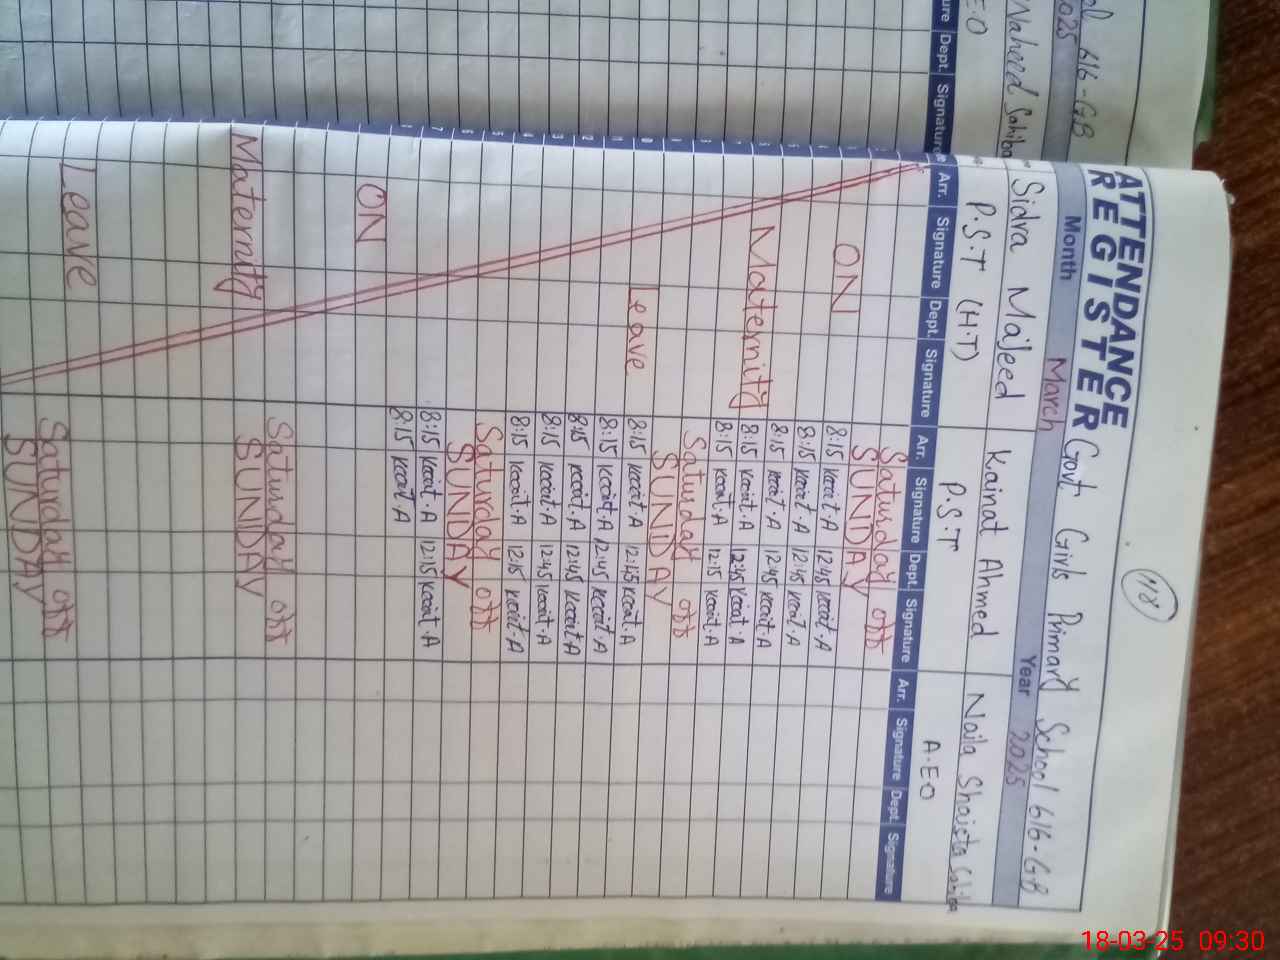 118
ATTENDANCE
REGISTER
Govt Girls Primary School 616-GB
Month March Year 2025
Sidra Majeed Kainat Ahmed Naila Shaista Sahiba
P.S.T (H.T) P.S.T A.E.O
Arr. Signature Dept. Signature Arr. Signature Dept. Signature Arr. Signature Dept. Signature
Saturday off
SUNDAY
ON
8:15 12:45
8:15 12:45
8:15 12:45
Maternity
8:15 12:45
8:15 12:15
Saturday off
SUNDAY
Leave
8:15 12:45
8:15 12:45
8:15 12:45
8:15 12:45
8:15 12:15
Saturday off
SUNDAY
8:15 12:15
8:15
ON
Saturday off
SUNDAY
Maternity
Leave
Saturday off
SUNDAY
616-GB
2025
Naheed Sahiba
Dept. Signature
18-03-25 09:30